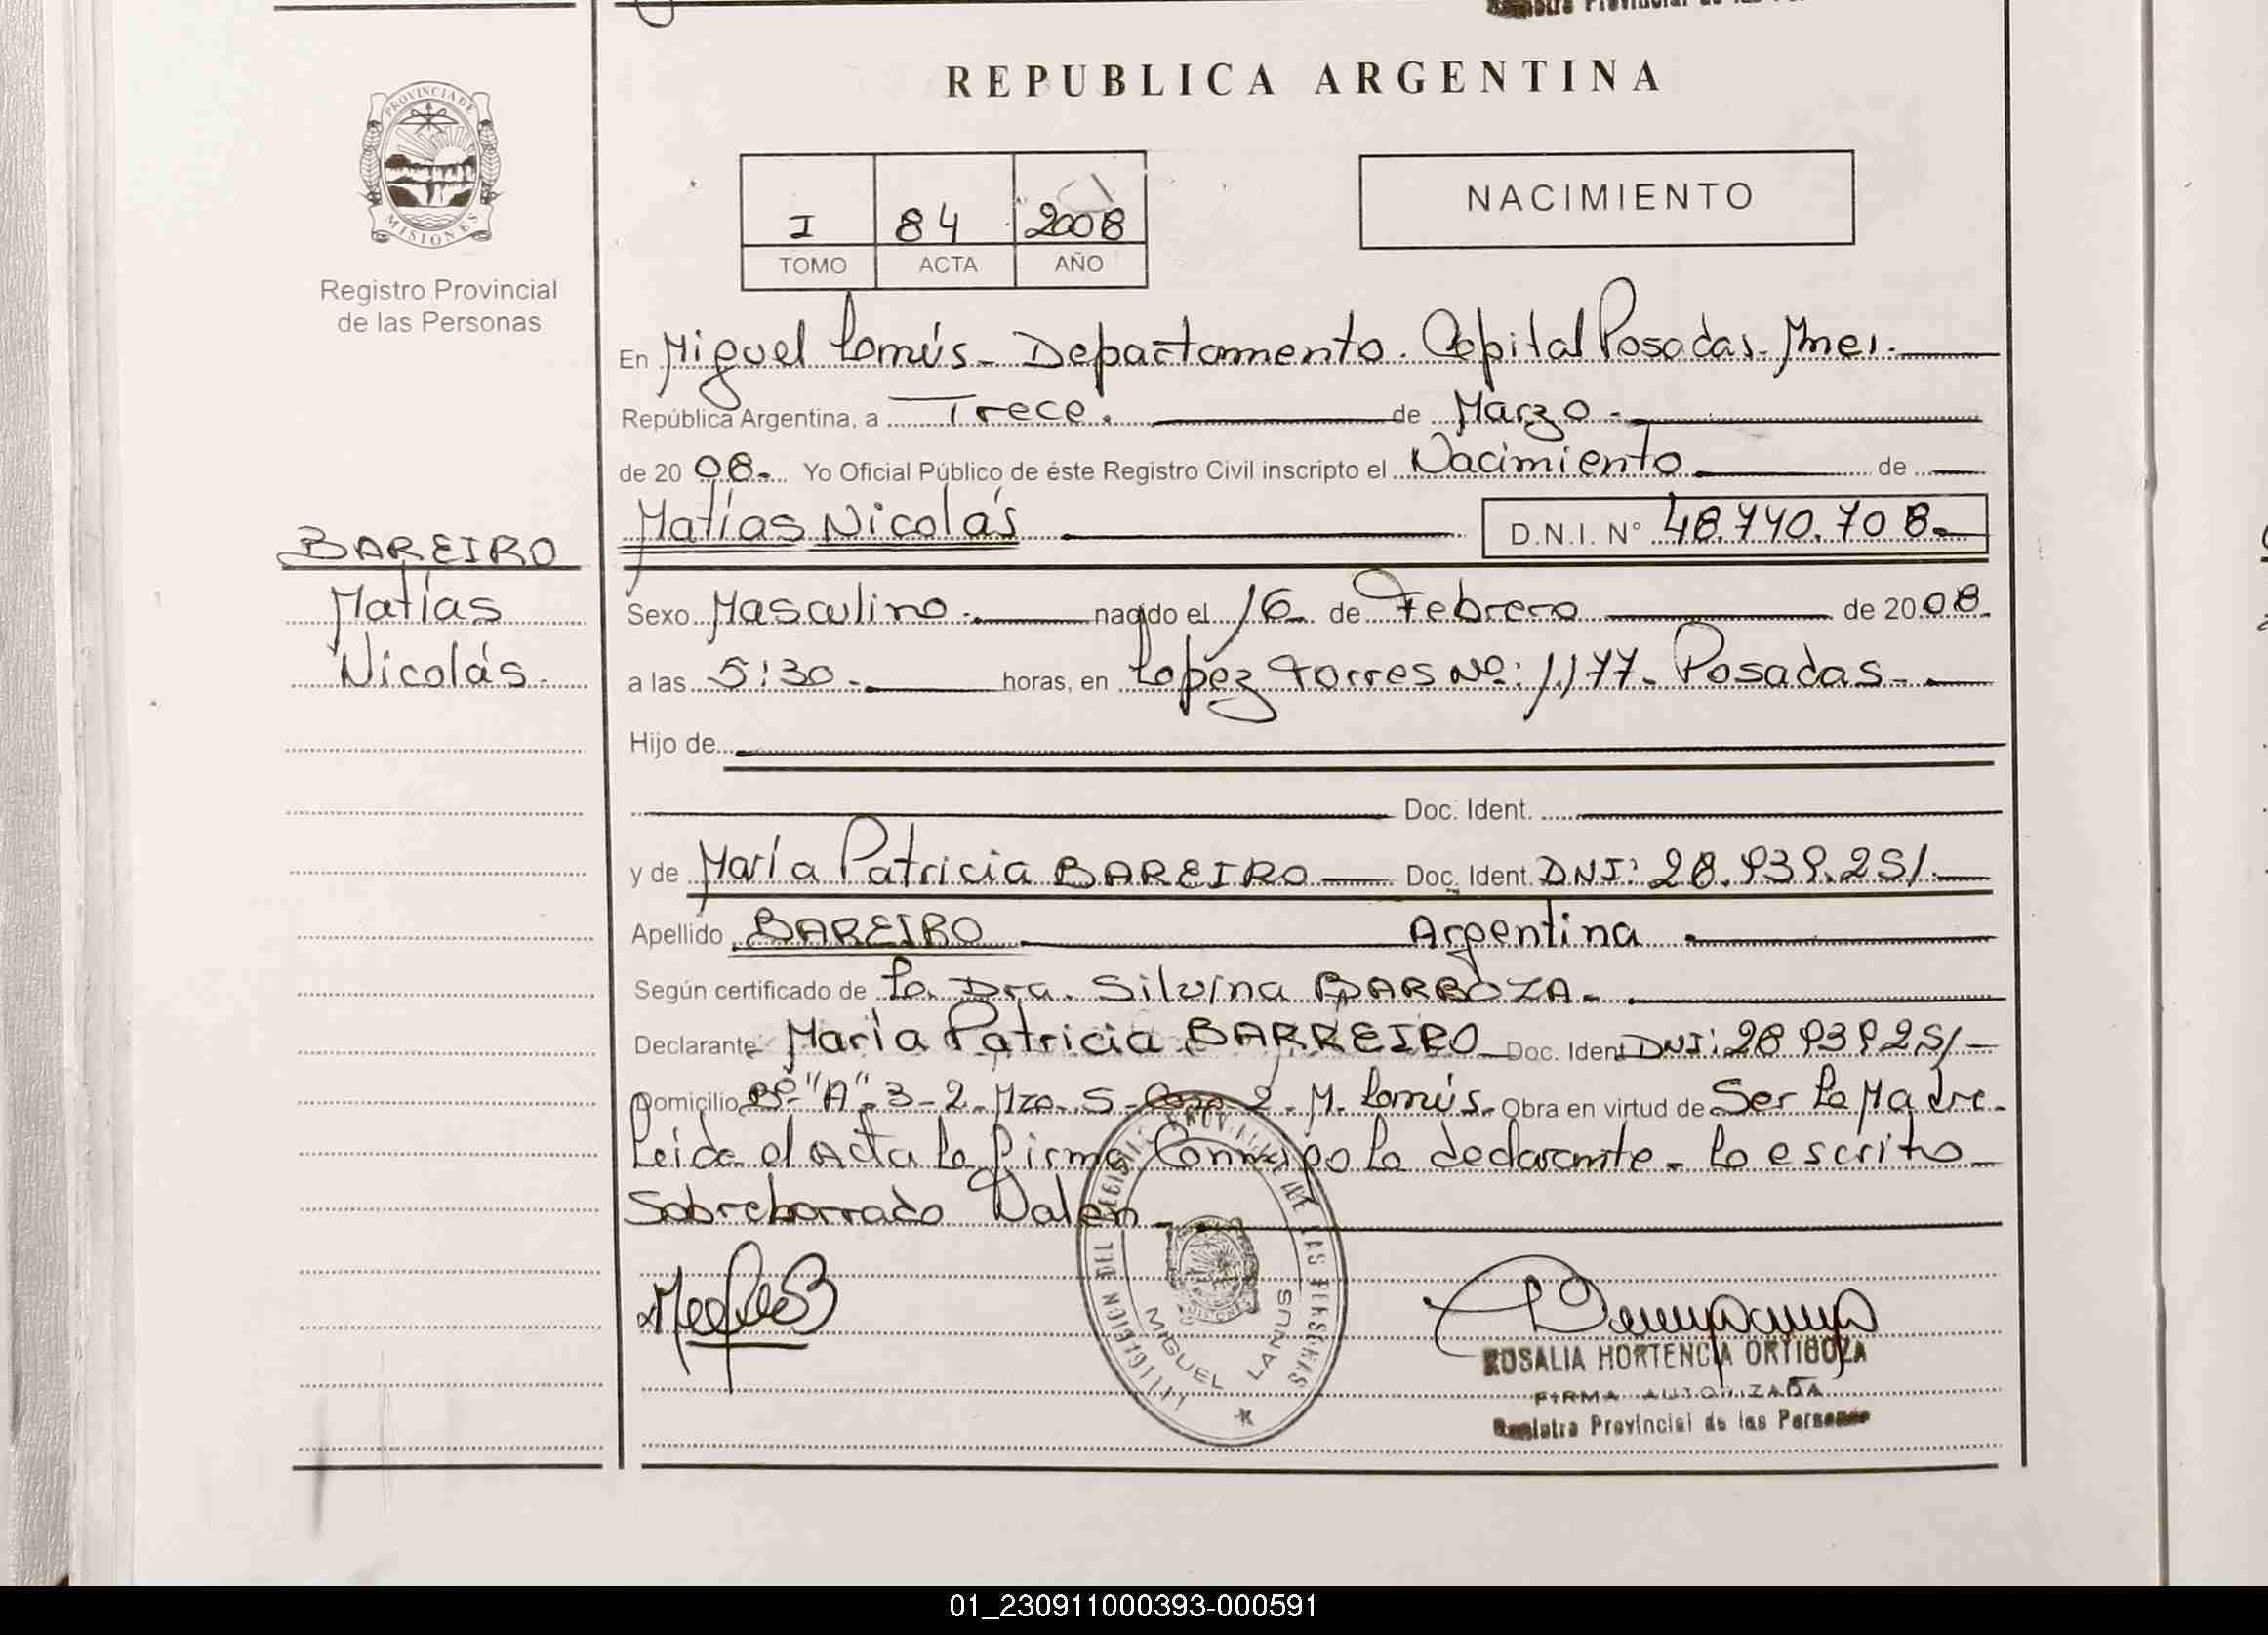 REPUBLICA ARGENTINA
PROVINCIA DE MISIONES
Registro Provincial
de las Personas
I 84 2008
TOMO ACTA AÑO
NACIMIENTO
En Miguel Lanús - Departamento. Capital Posadas. Mnes.
República Argentina, a Trece. de Marzo -
de 20 08. Yo Oficial Público de éste Registro Civil inscripto el Nacimiento de
Matías Nicolás D.N.I. N° 48.740.708-
BAREIRO
Matías
Nicolás.
Sexo Masculino. nacido el 16 de Febrero de 2008.
a las 5:30 - horas, en Lopez Torres Nº: 1.177 - Posadas -
Hijo de
Doc. Ident.
y de María Patricia BAREIRO Doc. Ident. DNI: 28.939.251.
Apellido BAREIRO Argentina
Según certificado de La Dra. Silvina BARBOZA.
Declarante María Patricia BARREIRO Doc. Ident DNI: 28 939 251
Domicilio Bº "A" 3-2 - Mza. 5 - Casa 2 - M. Lanús. Obra en virtud de Ser La Madre.
Leida el Acta La firma Conmigo la declarante - lo escrito
Sobreborrado Valen -
REGISTRO PROVINCIAL DE LAS PERSONAS
MIGUEL LANUS
ROSALIA HORTENCIA ORTIGOZA
FIRMA AUTORIZADA
Registro Provincial de las Personas
01_230911000393-000591